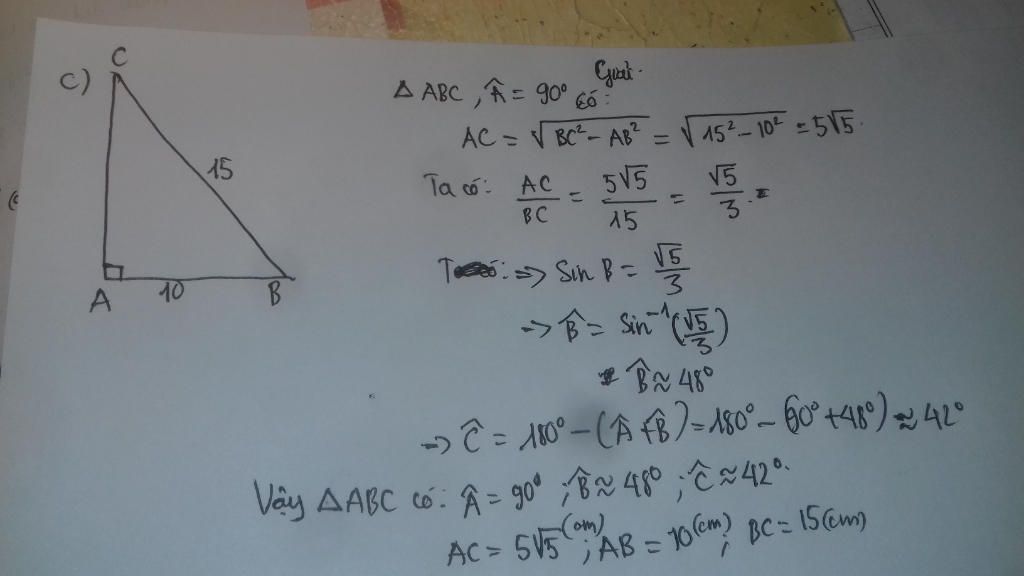 c)
C
15
A
10
B
Giải.
Δ ABC, Â = 90° có:
AC = √(BC² - AB²) = √(15² - 10²) = 5√5.
Ta có: AC/BC = 5√5/15 = √5/3.
=> Sin B = √5/3
=> B̂ = Sin⁻¹(√5/3)
B̂ ≈ 48°
=> Ĉ = 180° - (Â + B̂) = 180° - (90° + 48°) ≈ 42°
Vậy Δ ABC có: Â = 90°; B̂ ≈ 48°; Ĉ ≈ 42°.
AC = 5√5 (cm); AB = 10 (cm); BC = 15 (cm)